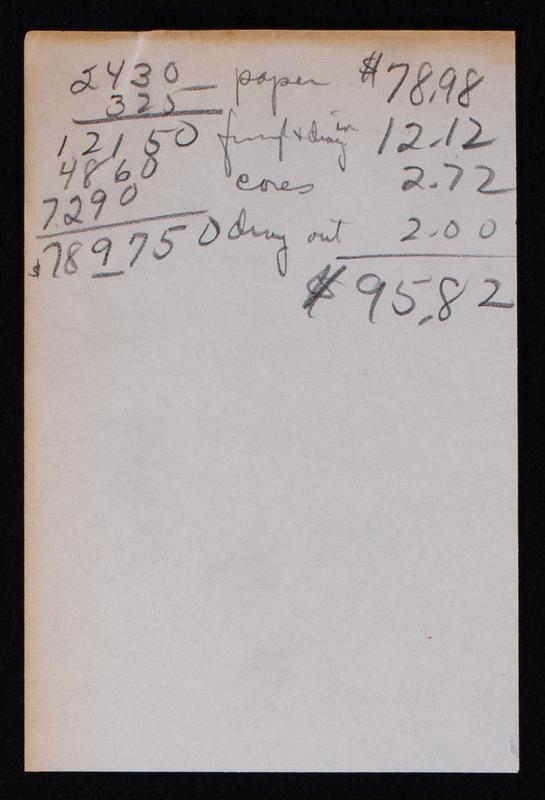 2430 paper $78.98
325
12150 frnt & dray in 12.12
4860 cores 2.72
7290
$789750 dray out 2.00
$95.82